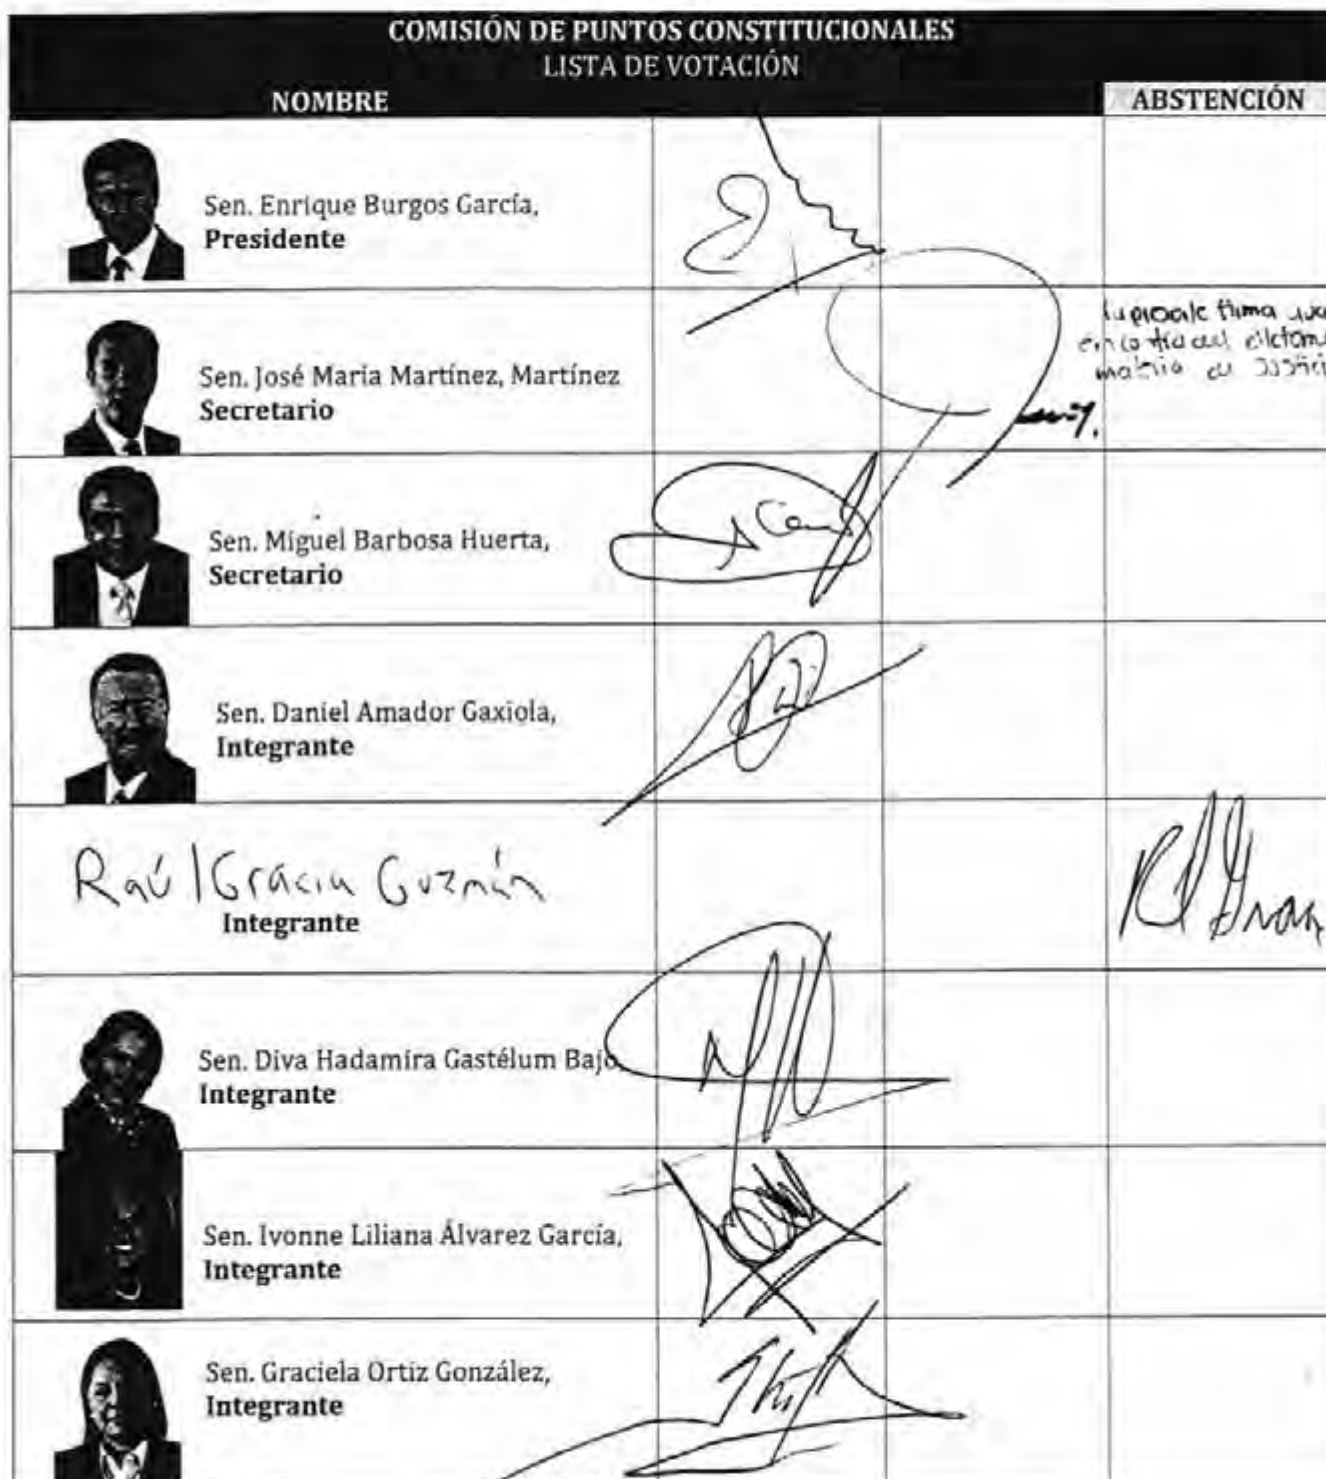 COMISIÓN DE PUNTOS CONSTITUCIONALES
LISTA DE VOTACIÓN
NOMBRE ABSTENCIÓN
Sen. Enrique Burgos García,
Presidente
Sen. José María Martínez, Martínez
Secretario
Sen. Miguel Barbosa Huerta,
Secretario
Sen. Daniel Amador Gaxiola,
Integrante
Raúl Gracia Guzmán
Integrante
Sen. Diva Hadamira Gastélum Bajo,
Integrante
Sen. Ivonne Liliana Álvarez García,
Integrante
Sen. Graciela Ortiz González,
Integrante